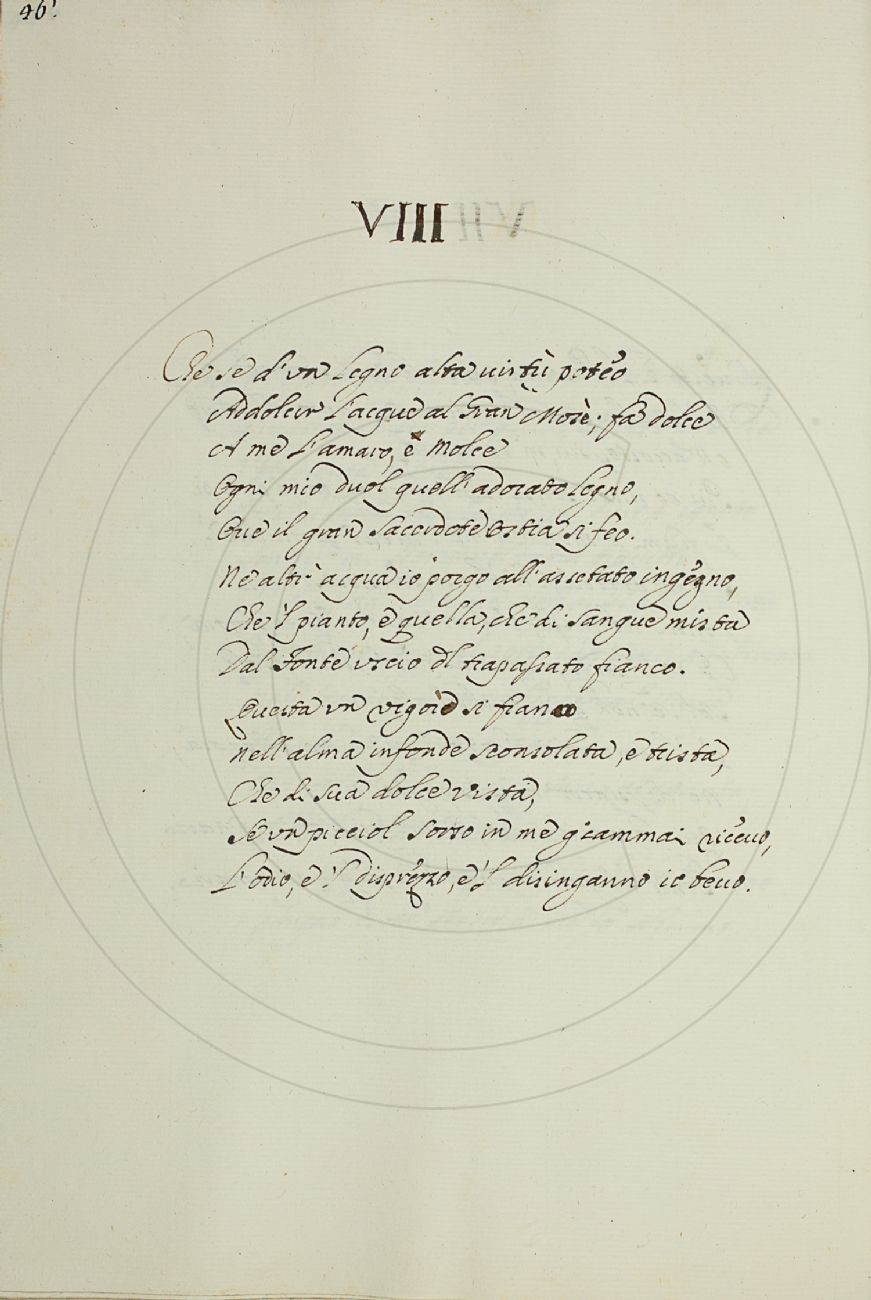 46.
VIII
Che se d'vn Legno alta uirtù potéo
Addolcir l'acque al Gran Mosè; fà dolce
A me l'amaro, e Molce
Ogni mio duol quell'adorato Legno,
Oue il gran Sacerdote Ostia si feo.
Ne altr'acqua io porgo all'assetato ingegno,
Che 'l pianto, e quella, che di Sangue mista
Dal Fonte vscio del trapassato fianco.
Questa vn vigor sì franco
Nell'alma infonde sconsolata, e trista,
Che di sua dolce vista,
Se vn picciol Sorso in me giammai riceuo,
L'Odio, e 'l disprezzo, e 'l disinganno io beuo.